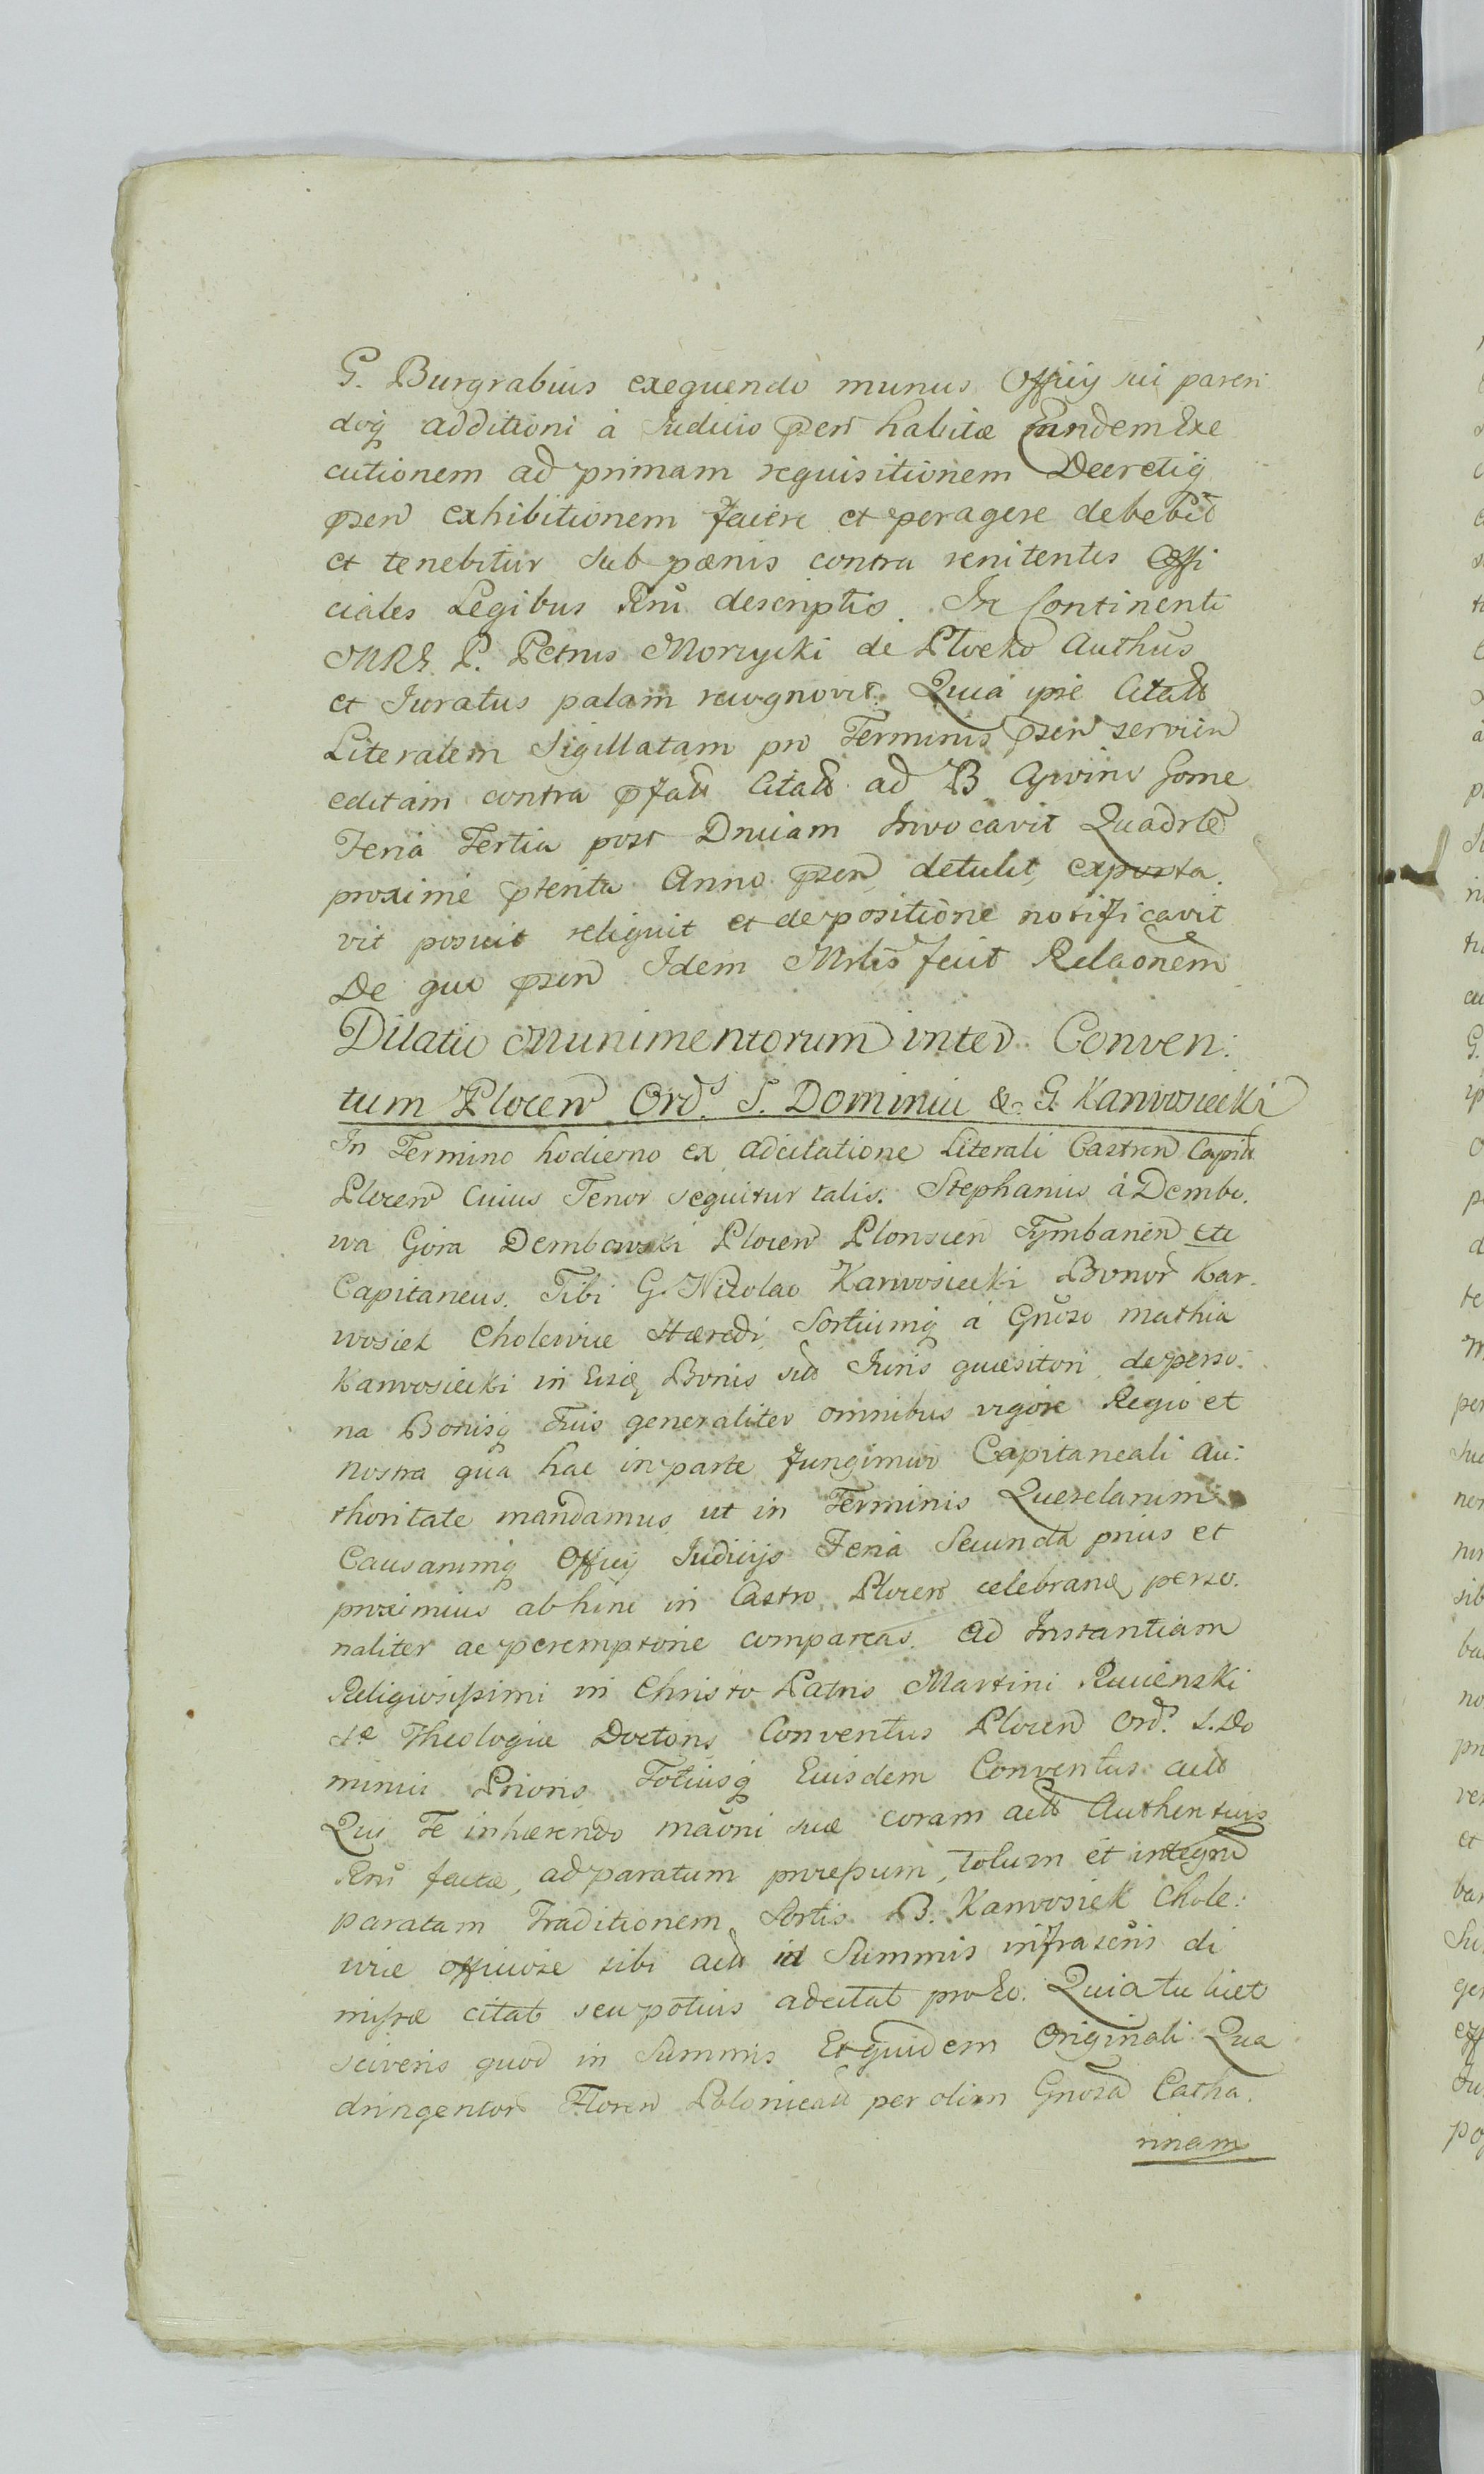 G. Burgrabius exequendo munus Officij sui paren
doq; additioni à Judicio pſen habitæ Eandem Exe
cutionem ad primam requisitionem Decretiq;
pſen exhibitionem facere et peragere debebit
et tenebitur sub pænis contra renitentes Offi
ciales Legibus Rni descriptis. In Continenti
MRG P. Petrus Morzycki de Plocko Authus
et Juratus palam recognovit. Quia ipse Citatt
Literalem Sigillatam pro Terminis pſen servien
editam contra pfatt Citatt ad B Gome
Feria Tertia post Dnicam Invocavit Quadrle
proxime pterita Anno pſen detulit, exporta.
vit posuit reliquit et de positione notificavit
De quo pſen Idem Mrlis fecit Relaonem
Dilatio Munimentorum inter Conven:
tum Plocen Ord. S. Dominici & G. Karwosiecki
In Termino hodierno ex adcitatione Literali Castren Capit
Plocen Cuius Tenor sequitur talis. Stephanus à Dembo.
wa Gora Dembowski Plocen Plonscen Tymbarien etc
Capitaneus. Tibi G. Nicolao Karwosiecki Bonor Kar.
wosiek Cholewice Hæredi, Sortiumq; à Gnoso Mathia
Karwosiecki in Eisd Bonis sitt Juris quæsitori, de perso.
na Bonisq; Tuis generaliter omnibus vigore Regio et
nostra qua hac in parte fungimur Capitaneali Au:
thoritate mandamus, ut in Terminis Querelarum
Causarumq; Officij Judicijs Feria Secunda prius et
proximius abhinc in Castro Plocen celebrand perso.
naliter ac peremptorie compareas. Ad Instantiam
Religiosissimi in Christo Patris Martini Rucienski
Se Theologiæ Doctoris Conventus Plocen Ord. S. Do
minici Prioris Totiusq; Eiusdem Conventus actt
Qui Te inhærendo maoni suæ coram actt Authenticis
Rni factæ, ad paratum processum, tolum et integrum
paratam Traditionem Sortis B. Karwosiek Chole:
wice officiose sibi actt in Summis infrascris di
missæ citat seu potius adcitat pro Eo. Quia tu licet
sciveris quod in Summis Et quidem Originali Qua
dringentor Floren Polonicatt per olim Gnosa Catha.
rinam